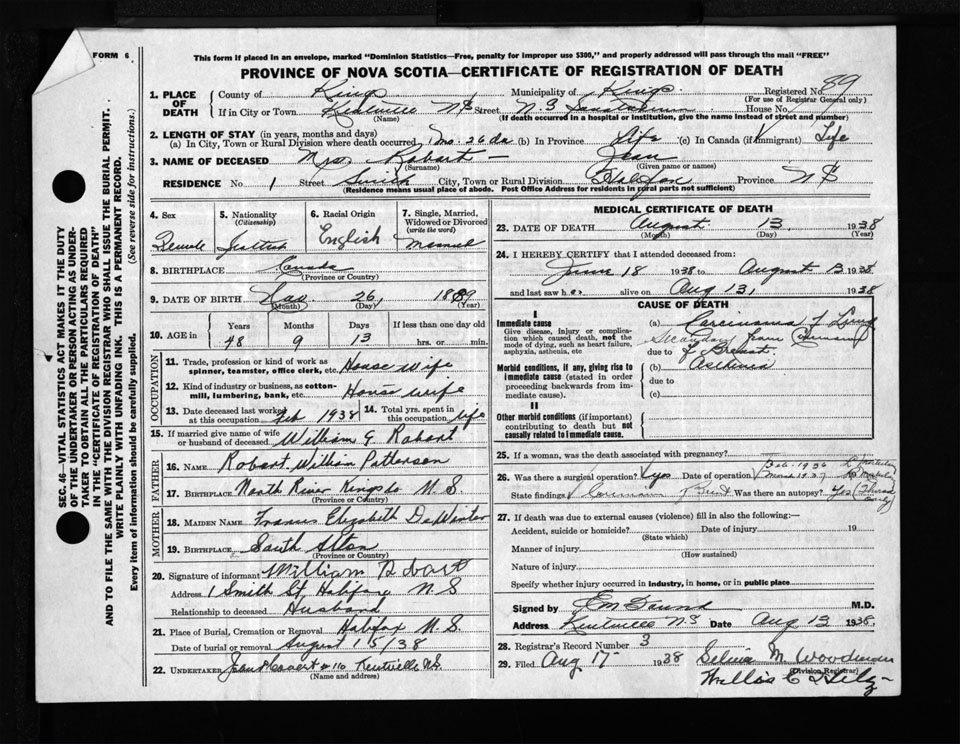 FORM 6
This form if placed in an envelope, marked "Dominion Statistics—Free, penalty for improper use $300," and properly addressed will pass through the mail "FREE"
PROVINCE OF NOVA SCOTIA—CERTIFICATE OF REGISTRATION OF DEATH
1. PLACE OF DEATH County of Kings Municipality of Kings Registered No. 89
(For use of Registrar General only)
If in City or Town Kentville NS Street N.S. Sanatorium House No.
(Name) (If death occurred in a hospital or institution, give the name instead of street and number)
2. LENGTH OF STAY (in years, months and days)
(a) In City, Town or Rural Division where death occurred 1 mo. 26 da (b) In Province Life (c) In Canada (if immigrant) Life
3. NAME OF DECEASED Mrs. Robart — Jean
(Surname) (Given name or names)
RESIDENCE No. 1 Street Smith City, Town or Rural Division Halifax Province N S
(Residence means usual place of abode. Post Office Address for residents in rural parts not sufficient)
4. Sex Female
5. Nationality (Citizenship)
6. Racial Origin English
7. Single, Married, Widowed or Divorced (write the word) Married
8. BIRTHPLACE Canada
(Province or Country)
9. DATE OF BIRTH 26, 1889
(Month) (Day) (Year)
10. AGE in Years Months Days If less than one day old
48 9 13 hrs. or min.
OCCUPATION
11. Trade, profession or kind of work as spinner, teamster, office clerk, etc. House wife
12. Kind of industry or business, as cotton-mill, lumbering, bank, etc. House wife
13. Date deceased last worked at this occupation Feb 1938 14. Total yrs. spent in this occupation life
15. If married give name of wife or husband of deceased William G Robart
FATHER
16. NAME Robart William Patterson
17. BIRTHPLACE North River Kings Co N.S.
(Province or Country)
MOTHER
18. MAIDEN NAME Frances Elizabeth DeWinter
19. BIRTHPLACE South Alton
(Province or Country)
20. Signature of informant William Robart
Address 1 Smith St, Halifax N S
Relationship to deceased Husband
21. Place of Burial, Cremation or Removal Halifax N.S.
Date of burial or removal August 15/38
22. UNDERTAKER Kentville N.S.
(Name and address)
MEDICAL CERTIFICATE OF DEATH
23. DATE OF DEATH August 13 1938
(Month) (Day) (Year)
24. I HEREBY CERTIFY that I attended deceased from:
June 18 1938 to August 13 1938
and last saw her alive on Aug 13, 1938
CAUSE OF DEATH
I
Immediate cause
Give disease, injury or complication which caused death, not the mode of dying, such as heart failure, asphyxia, asthenia, etc
(a) Carcinoma of Lung
Secondary from Carcinoma
due to of Breast.
Morbid conditions, if any, giving rise to immediate cause (stated in order proceeding backwards from immediate cause).
(b) Asthenia
due to
(c)
II
Other morbid conditions (if important) contributing to death but not causally related to immediate cause.
25. If a woman, was the death associated with pregnancy?
Feb. 1936
26. Was there a surgical operation? Yes Date of operation March 1937
State findings Carcinoma of Breast Was there an autopsy? Yes
27. If death was due to external causes (violence) fill in also the following:—
Accident, suicide or homicide? Date of injury 19
(State which)
Manner of injury
(How sustained)
Nature of injury
Specify whether injury occurred in industry, in home, or in public place
Signed by M.D.
Address Kentville N.S Date Aug 13 1938.
28. Registrar's Record Number 3
29. Filed Aug 17- 1938 M. Woodworth
(Division Registrar)
SEC. 46—VITAL STATISTICS ACT MAKES IT THE DUTY
OF THE UNDERTAKER OR PERSON ACTING AS UNDER-
TAKER TO OBTAIN ALL THE PARTICULARS REQUIRED
IN THE "CERTIFICATE OF REGISTRATION OF DEATH"
AND TO FILE THE SAME WITH THE DIVISION REGISTRAR WHO SHALL ISSUE THE BURIAL PERMIT.
WRITE PLAINLY WITH UNFADING INK. THIS IS A PERMANENT RECORD.
Every item of information should be carefully supplied. (See reverse side for instructions.)